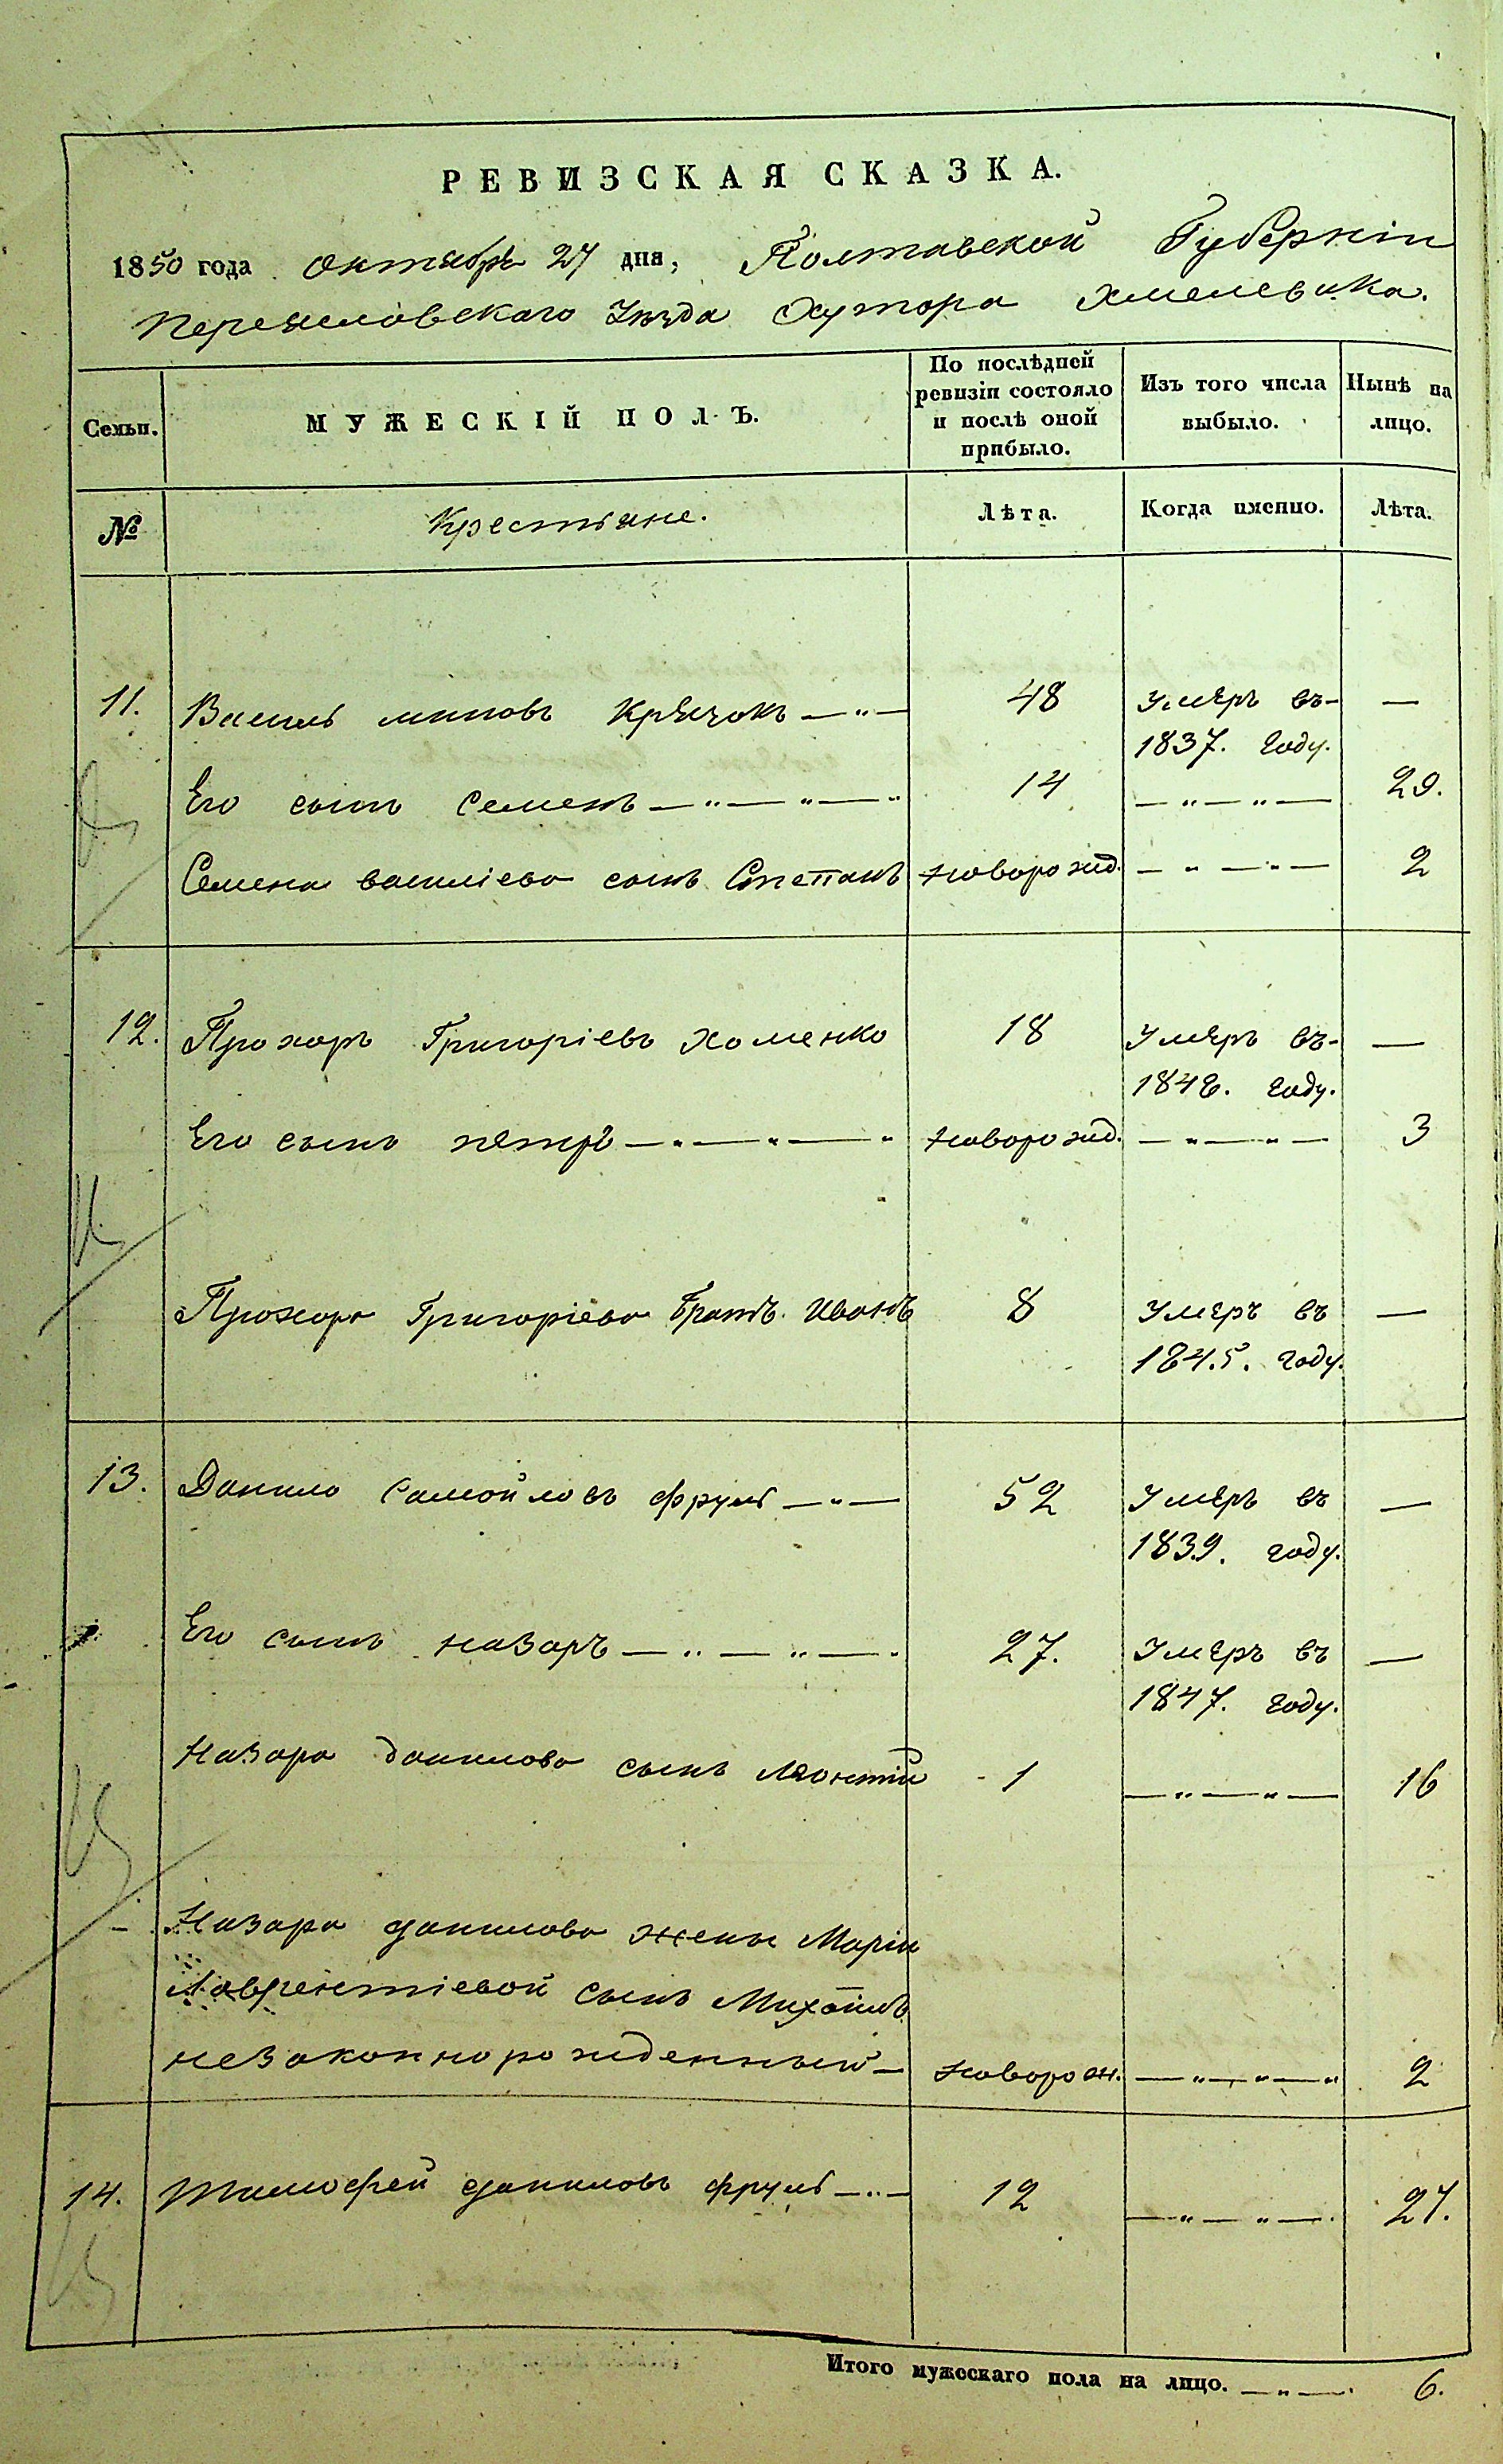 РЕВИЗСКАЯ СКАЗКА.
1850 года октября 27 дня, Полтавской Губерніи
Переяславскаго Уѣзда Хутора Хмелевика.
Семьи. МУЖЕСКІЙ ПОЛЪ. По послѣдней ревизіи состояло и послѣ оной прибыло. Изъ того числа выбыло. Нынѣ на лицо.
№ Крестьяне. Лѣта. Когда именно. Лѣта.
11. Василь миновъ Крячокъ 48 Умеръ въ —
1837. году.
Его сынъ Семенъ 14 29.
Семена василіева сынъ Степанъ новорожд. 2
12. Прохоръ Григоріевъ Хоменко 18 Умеръ въ —
1848. году.
Его сынъ петръ новорожд. 3
Прохора Григоріева братъ Иванъ 8 Умеръ въ —
1845. году.
13. Данило Самойловъ фруль 52 Умеръ въ —
1839. году.
Его сынъ назаръ 27. Умеръ въ —
1847. году.
Назара данилова сынъ Леонтій 1 16
Назара данилова жены Маріи
Лаврентіевой сынъ Михаилъ
незаконнорожденный новорож. 2
14. Тимофей даниловъ фруль 12 27.
Итого мужескаго пола на лицо. 6.